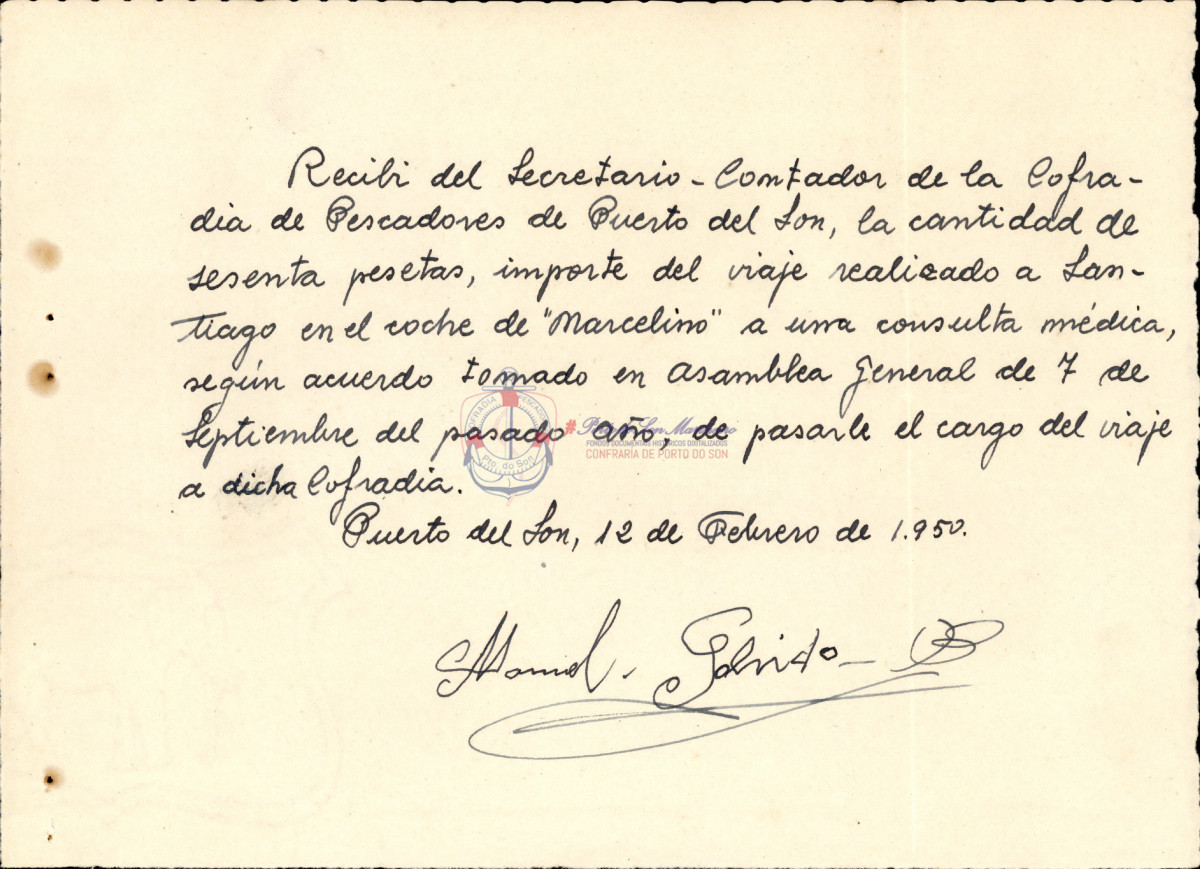 Recibi del Secretario-Contador de la Cofra-
dia de Pescadores de Puerto del Son, la cantidad de
sesenta pesetas, importe del viaje realizado a San-
tiago en el coche de "Marcelino" a una consulta médica,
según acuerdo tomado en Asamblea General de 7 de
Septiembre del pasado año, de pasarle el cargo del viaje
a dicha Cofradia.
Puerto del Son, 12 de Febrero de 1.950.
Manuel
COFRADIA PESCADORES
Pto. do Son
FONDOS DOCUMENTAIS HISTÓRICOS DIXITALIZADOS
CONFRARÍA DE PORTO DO SON